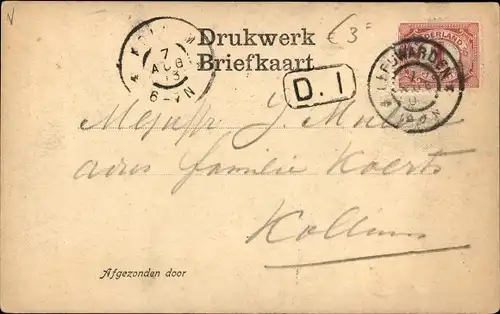 Drukwerk
Briefkaart
£3=
NEDERLAND
LEEUWARDEN
7
AUG
03
6-7N
D. I
Mejuffr J.
adres familie Koerts
Kollum
Afgezonden door